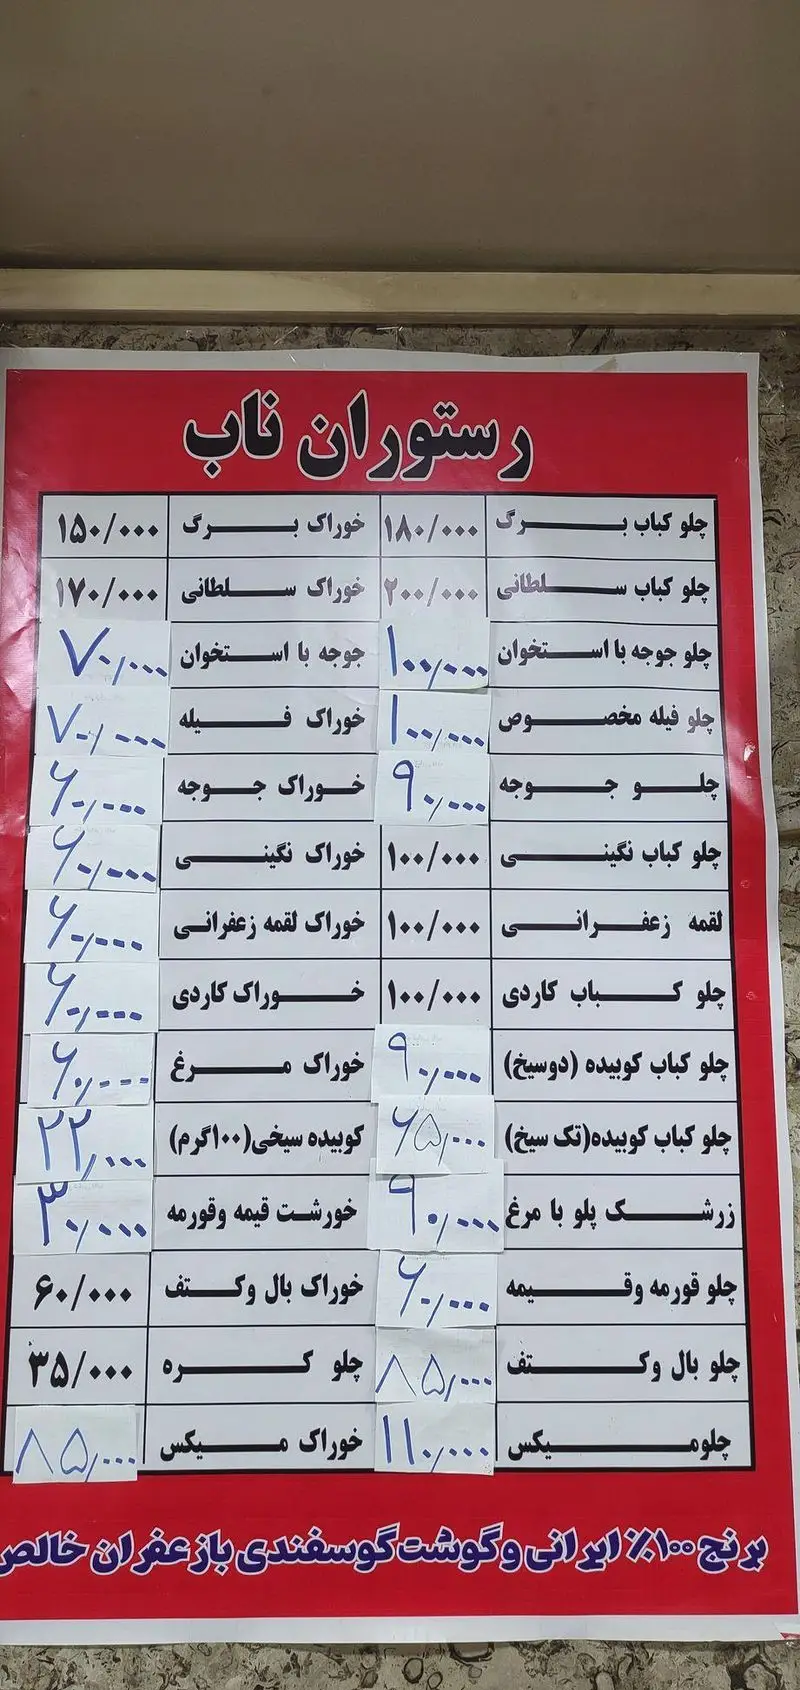 رستوران ناب
چلو کباب برگ ۱۸۰/۰۰۰ خوراک برگ ۱۵۰/۰۰۰
چلو کباب سلطانی ۲۰۰/۰۰۰ خوراک سلطانی ۱۷۰/۰۰۰
چلو جوجه با استخوان ۱۰۰,۰۰۰ جوجه با استخوان ۷۰,۰۰۰
چلو فیله مخصوص ۱۰۰,۰۰۰ خوراک فیله ۷۰,۰۰۰
چلو جوجه ۹۰,۰۰۰ خوراک جوجه ۶۰,۰۰۰
چلو کباب نگینی ۱۰۰/۰۰۰ خوراک نگینی ۶۰,۰۰۰
لقمه زعفرانی ۱۰۰/۰۰۰ خوراک لقمه زعفرانی ۶۰,۰۰۰
چلو کباب کاردی ۱۰۰/۰۰۰ خوراک کاردی ۶۰,۰۰۰
چلو کباب کوبیده (دوسیخ) ۹۰,۰۰۰ خوراک مرغ ۶۰,۰۰۰
چلو کباب کوبیده(تک سیخ) ۶۵,۰۰۰ کوبیده سیخی(۱۰۰گرم) ۲۲,۰۰۰
زرشک پلو با مرغ ۹۰,۰۰۰ خورشت قیمه وقورمه ۳۰,۰۰۰
چلو قورمه وقیمه ۶۰,۰۰۰ خوراک بال وکتف ۶۰/۰۰۰
چلو بال وکتف ۸۵,۰۰۰ چلو کره ۳۵/۰۰۰
چلومیکس ۱۱۰,۰۰۰ خوراک میکس ۸۵,۰۰۰
برنج ۱۰۰٪ ایرانی وگوشت گوسفندی بازعفران خالص